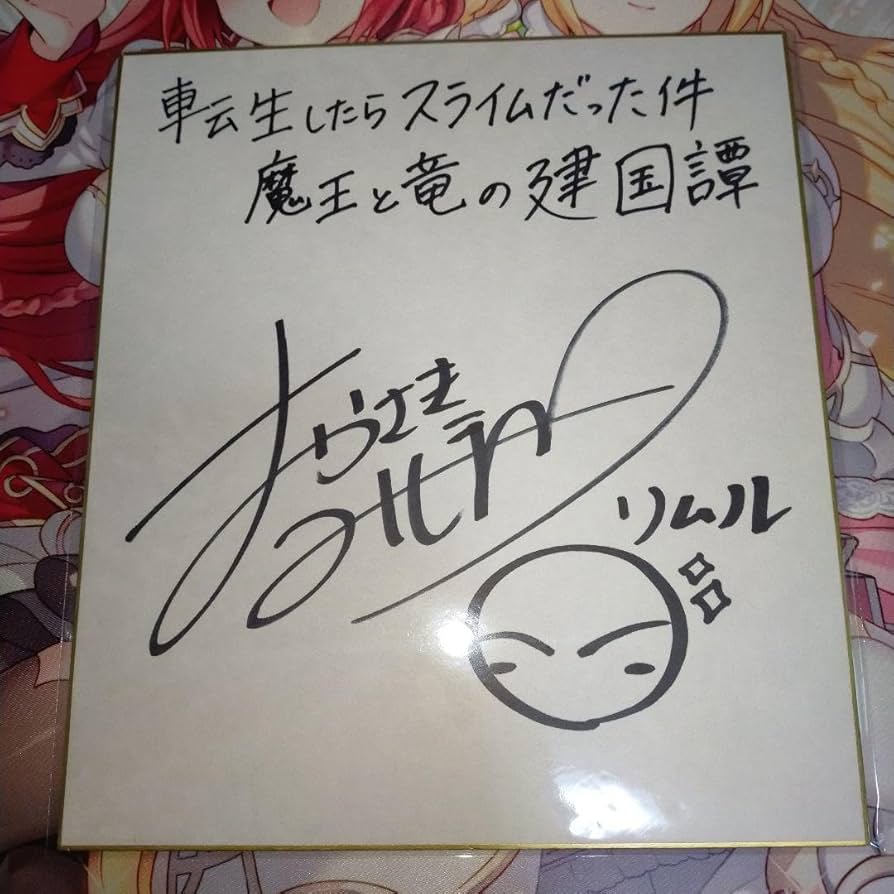 転生したらスライムだった件
魔王と竜の建国譚
おかさき
みほ
リムル